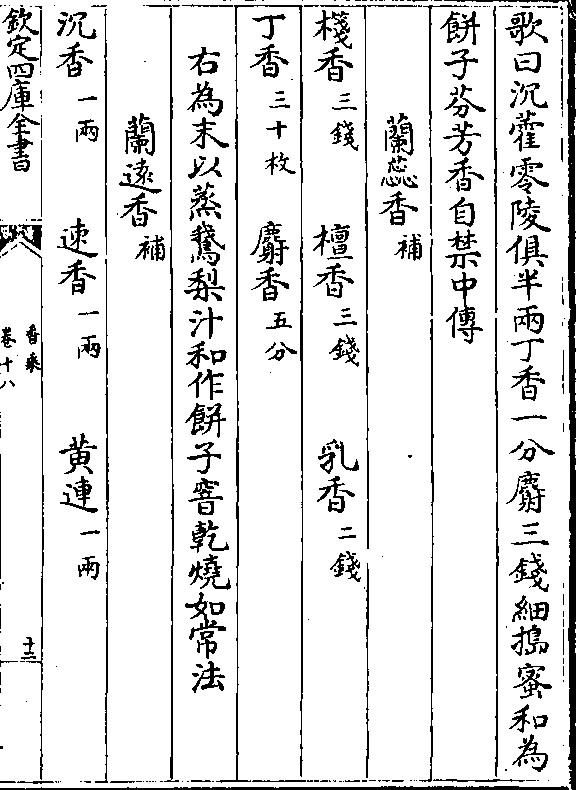 歌曰沉藿零陵俱半兩丁香一分麝三錢細搗蜜和為
餅子芬芳香自禁中傳
蘭蕊香補
棧香三錢 檀香三錢 乳香二錢
丁香三十枚 麝香五分
右為末以蒸鵞梨汁和作餅子窨乾燒如常法
蘭逺香補
沉香一兩 速香一兩 黄連一兩
欽定四庫全書 香乘 卷十八 十三